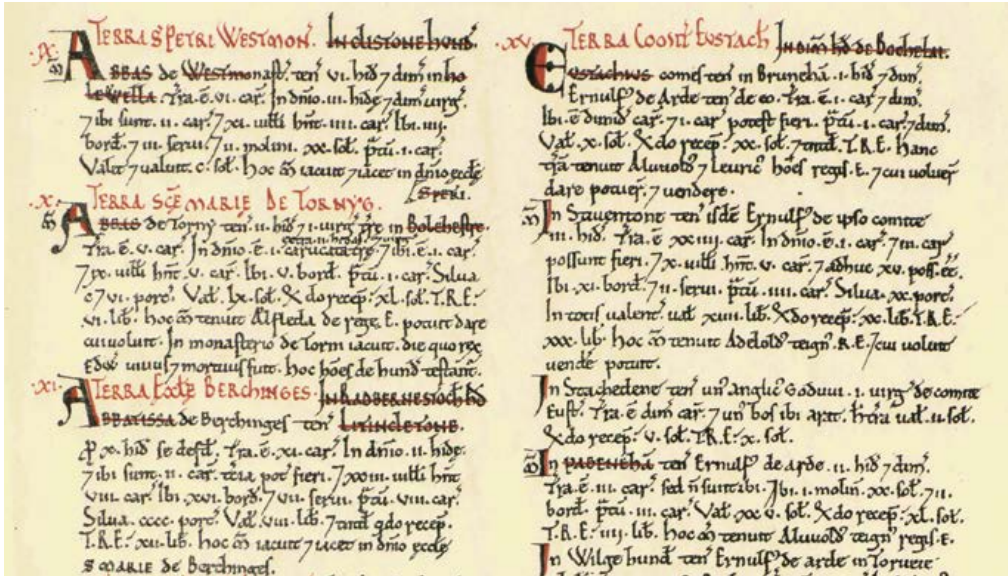 .IX. TERRA S PETRI WESTMON. IN CLISTONE HUND.
ABBAS de Westmonast̄. ten̄ .VI. hid̄ 7 dim̄ in Ho
lewella. Tr̄a. ē .VI. car̄. In dn̄io .III. hidę 7 dim̄ uirg̃
7 ibi sunt .II. car̄. 7 XI. uilli hn̄t .IIII. car̄. Ibi .IIII.
bord̄. 7 III. serui. 7 II. molini. XX. sol. p̄tū .I. car̄.
Valet 7 valuit. C. sol. Hoc m̄ iacuit 7 iacet in dn̄io eccłę
S PETRI.
.X. TERRA SC̄E MARIE DE TORNYG.
ABBAS de Torny ten̄ .II. hid̄ 7 I. uirg̃ træ in Bolehestre.
Tr̄a. ē .V. car̄. In dn̄io. ē .I. carucata træ 7 ibi. ē .I. car̄.
7 IX. uilli hn̄t .V. car̄. Ibi .V. bord̄. p̄tū .I. car̄. Silua
C 7 VI. porc̄. Val. LX. sol. Qdo recep̄. XL. sol. T.R.E.
VI. lib. Hoc m̄ tenuit Ælfleda de rege. E. potuit dare
cui uoluit. In monasterio de Torni iacuit. die quo rex
Edw uiuus 7 mortuus fuit. Hoc hōes de hund testant̄.
.XI. TERRA ECCŁE BERCHINGES. IN RADBERNESTOCH HD
ABBATISSA de Berchinges ten̄ LITINCLETONE.
ꝑ X. hid se defd̄. Tr̄a. ē .XI. car̄. In dn̄io .II. hidę.
7 ibi sunt .II. car̄. tcia pot fieri. 7 XXIII. uilli hn̄t
VIII. car̄. Ibi XVI. bord̄. 7 VII. serui. p̄tū .VIII. car̄.
Silua. CCCC. porc̄. Val. VIII. lib. 7 tntd̄ qdo recep̄.
T.R.E. XII. lib. Hoc m̄ iacuit 7 iacet in dn̄io eccłę
S MARIE de Berchinges.
.XV. TERRA COMIT̄ EUSTACH IN DIM HD DE BOCHELAI.
EUSTACHIUS comes ten̄ in Brunehā .I. hid̄ 7 dim̄.
Ernulf de Arde ten̄ de eo. Tr̄a. ē .I. car̄ 7 dim̄.
Ibi. ē dimid car̄. 7 I. car̄ potest fieri. p̄tū .I. car̄ 7 dim̄.
Val. X. sol. Qdo recep̄. XX. sol. 7 tntd̄. T.R.E. Hanc
tr̄a tenuit Aluuold 7 Leuric hōēs regis. E. 7 cui uoluer̄
dare potuer̄. 7 uendere.
m̄ In Stauentone ten̄ isdē Ernulf de ipso comite
III. hid̄. Tr̄a. ē XXIIII. car̄. In dn̄io. ē .I. car̄. 7 III. car̄
possunt fieri. 7 X. uilli hn̄t .V. car̄. 7 adhuc XV. poss. ēē.
Ibi .XI. bord̄. 7 II. serui. p̄tū .IIII. car̄. Silua. XX. porc̄.
In totis ualent̄. ual XIIII. lib. Qdo recep̄. XX. lib. T.R.E.
XXX. lib. Hoc m̄ tenuit Adelold teign̄. R.E. 7 cui uoluit
uende potuit.
In Stachedene ten̄ un̄ anglic̄ Goduui .I. uirg̃ de comite
Eust̄. Tr̄a. ē dim̄ car̄. 7 un̄ bos ibi arat. H tra ual. II. sol.
Qdo recep̄. V. sol. T.R.E. X. sol.
m̄ In PABENEHĀ ten̄ Ernulf de arde .II. hid̄ 7 dim̄.
Tr̄a. ē .III. car̄. sed n̄ sunt ibi. 7 ibi .I. molin̄. XX. sol. 7 II.
bord̄. p̄tū .III. car̄. Val. XX 7 V. sol. Qdo recep̄. XL. sol.
T.R.E. IIII. lib. Hoc m̄ tenuit Aluuold teign̄ regis. E.
In Wilge hund ten̄ Ernulf de arde in Torueie